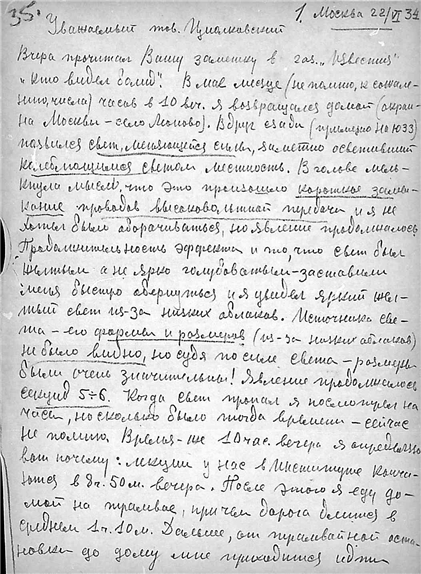 35. 1. Москва 22/VI 34
Уважаемый тов. Циолковский
Вчера прочитал Вашу заметку в газ. „Известия"
„Кто видел болид". В мае месяце (не помню, к сожале-
нию, числа) часов в 10 веч. я возвращался домой (окраи-
на Москвы – село). Вдруг сзади (примерно на ЮЗЗ)
появился свет, меняющейся силы, заметно осветивший
колеблющимся светом местность. В голове мель-
кнула мысль, что это произошло короткое замы-
кание проводов высоковольтной передачи и я не
хотел было оборачиваться, но явление продолжалось.
Продолжительность эффекта и то, что свет был
желтым а не ярко голубоватым – заставили
меня быстро обернуться и я увидел яркий жел-
тый свет из-за низких облаков. Источника све-
та – его формы и размеров (из-за низких облаков)
не было видно, но судя по силе света – размеры
были очень значительны! Явление продолжалось
секунд 5÷6. Когда свет пропал я посмотрел на
часы, но сколько было тогда времени – сейчас
не помню. Время – же 10 час. вечера я определяю
вот почему: лекции у нас в Институте конча-
ются в 8 ч. 50 м. вечера. После этого я еду до-
мой на трамвае, причем дорога длится в
среднем 1 ч. 10 м. Дальше, от трамвайной оста-
новки до дому мне приходится идти